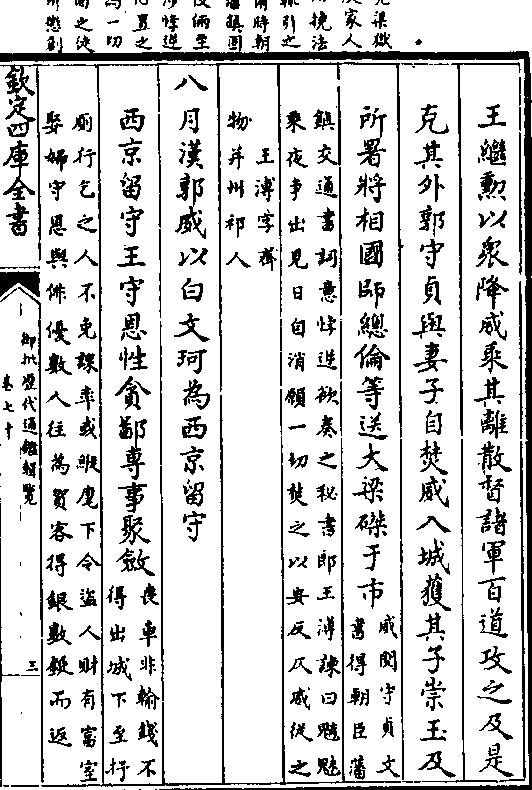 王繼勲以衆降威乘其離散督諸軍百道攻之及是
克其外郭守貞與妻子自焚威入城獲其子崇玉及
所署將相國師總倫等送大梁磔于市
威閲守貞文
書得朝臣藩
鎮交通書詞意悖逆欲奏之秘書郎王溥諫曰魑魅
乘夜爭出見日自消願一切焚之以安反仄威從之
王溥字齊
物并州祁人
八月漢郭威以白文珂為西京留守
西京留守王守恩性貪鄙専事聚斂
喪車非輸錢不
得出城下至抒
厠行乞之人不免課率或縱麾下令盜人財有富室
娶婦守恩與俳優數人往為賀客得銀數鋌而返
欽定四庫全書
御批歴代通鑑輯覽
卷七十
三